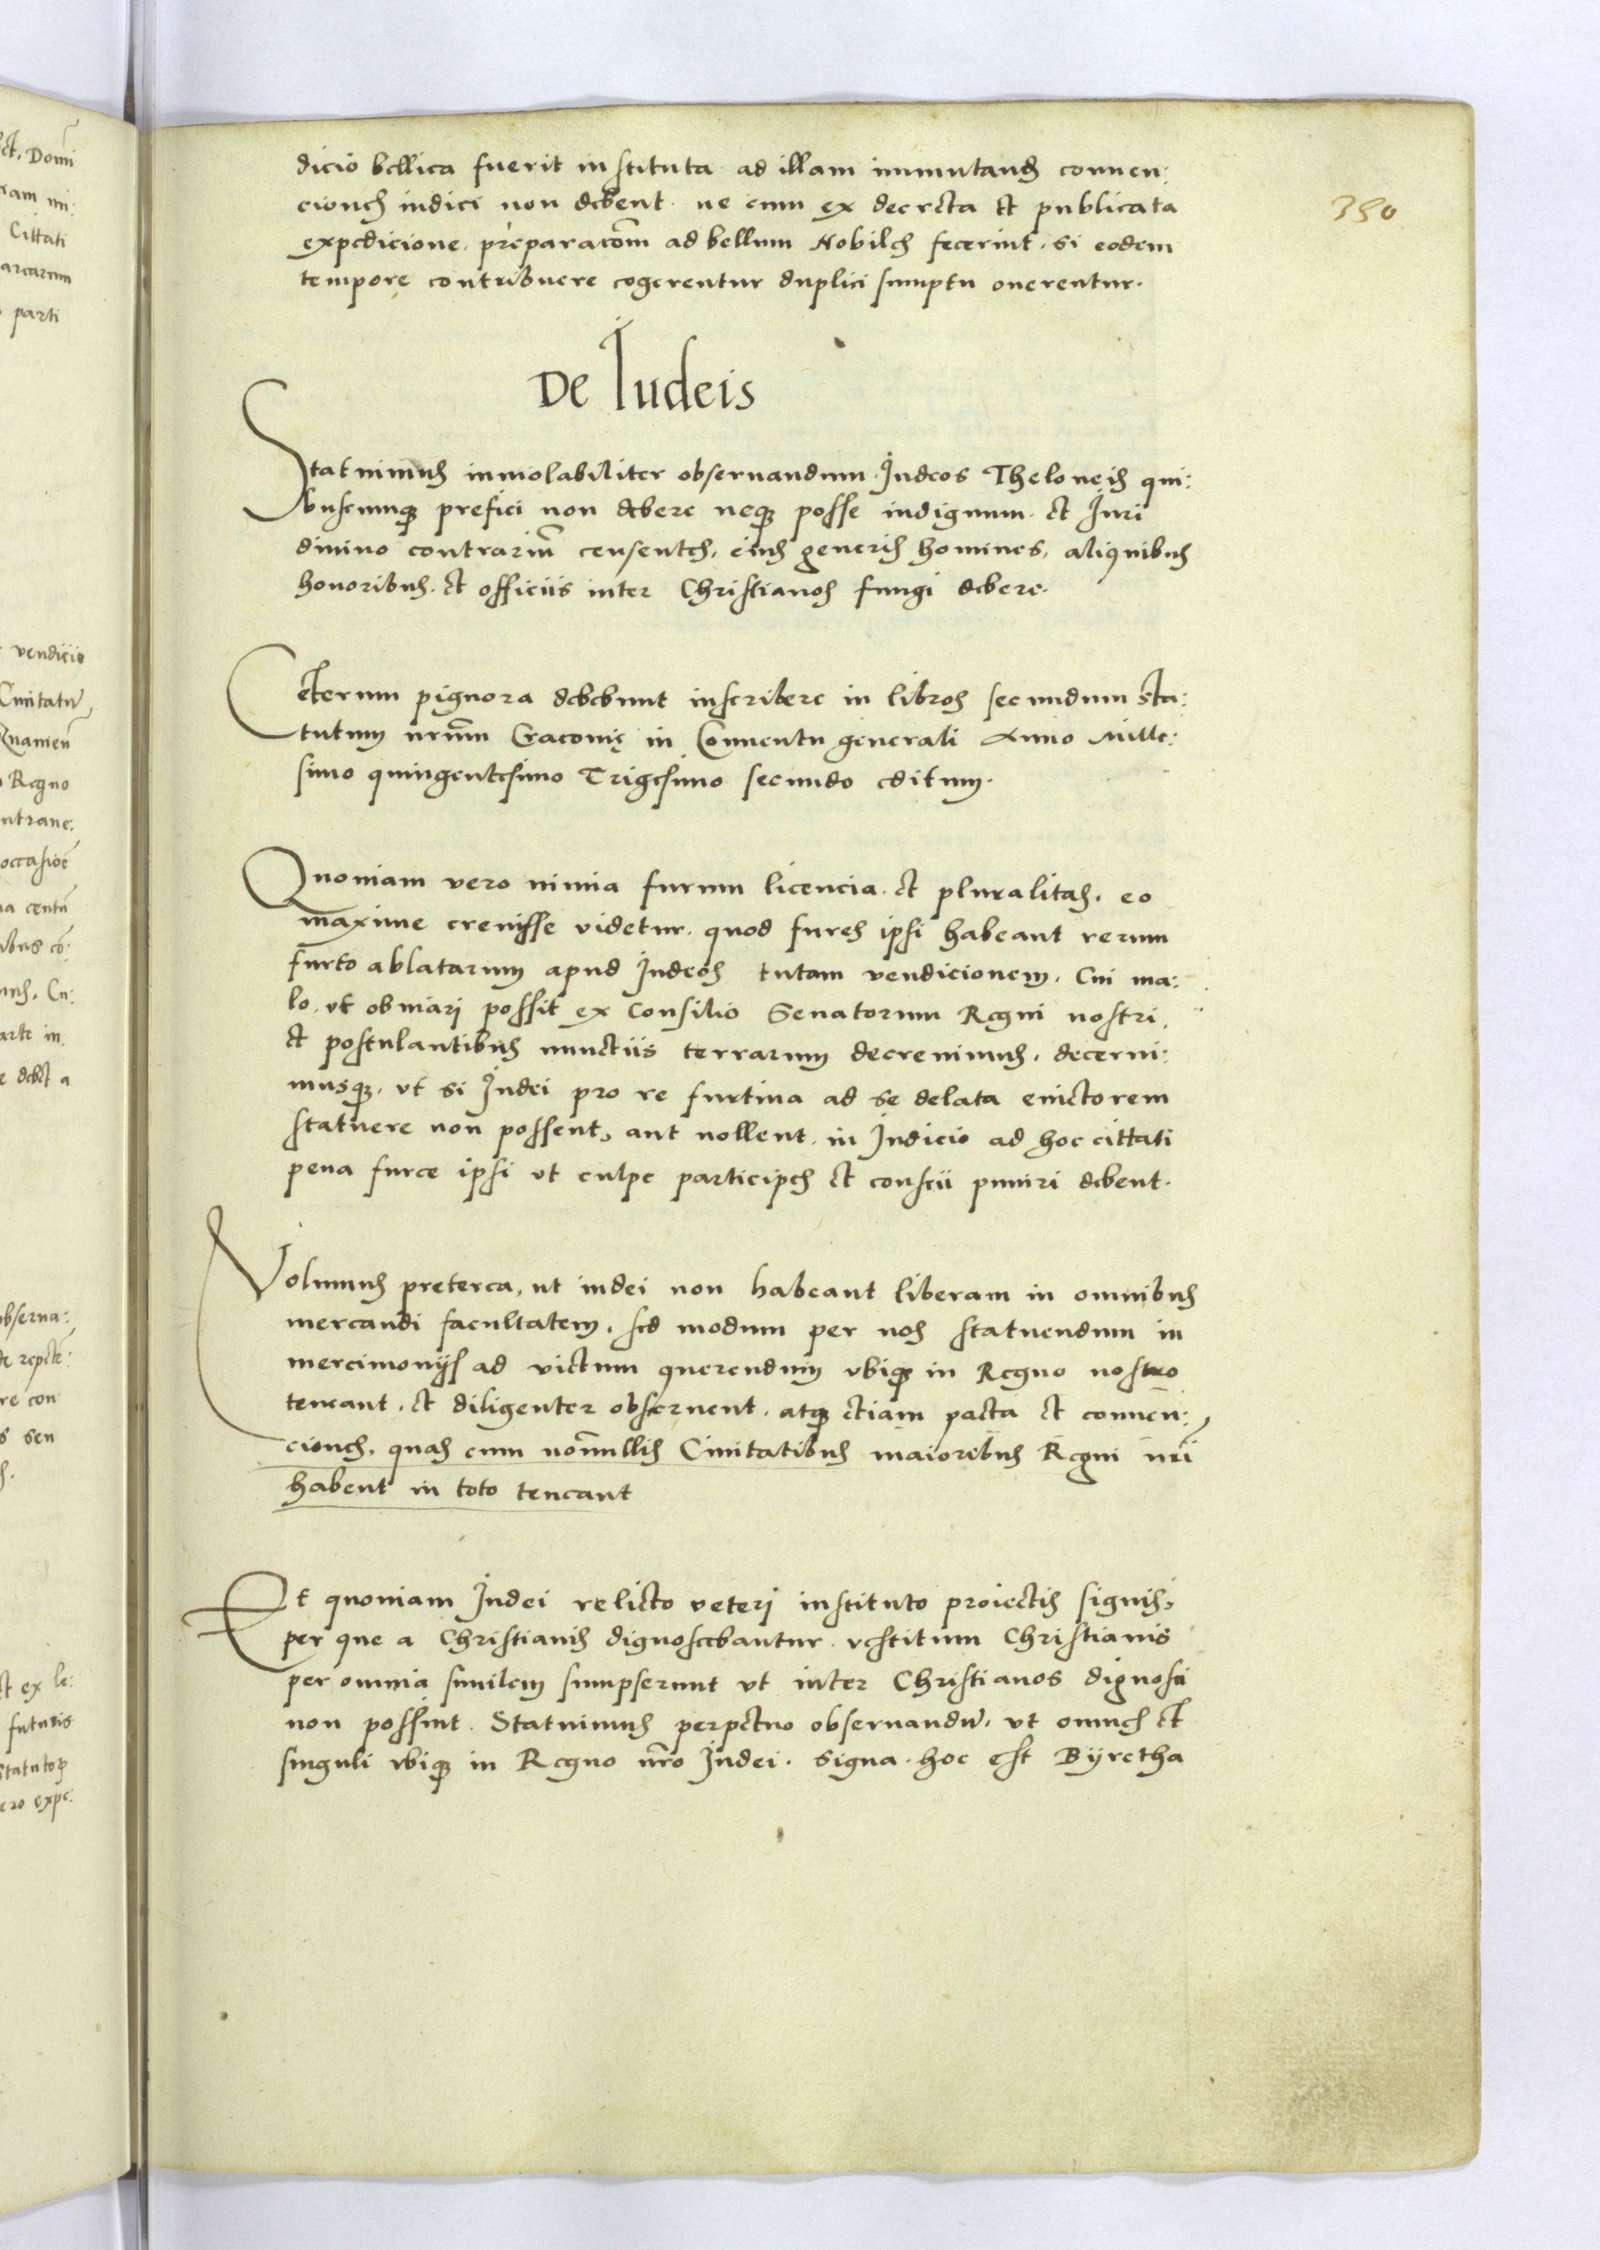 350
dicio bellica fuerit instituta ad illam immutand̃ conuen:
ciones indici non debent. ne cum ex decreta et publicata
expedicione. preparacõm ad bellum Nobiles fecerint. si eodem
tempore contribuere cogerentur duplici sumptu onerentur.
De Iudeis
Statuimus inuiolabiliter obseruandum. Iudeos Theloneis qui:
buscumq̃ prefici non debere neq̃ posse indignum. et Iuri
diuino contrariũ censentes, eius generis homines, aliquibus
honoribus. et officiis inter Christianos fungi debere.
Ceterum pignora debebunt inscribere in libros secundum sta:
tutum nrũm Cracouię in Conuentu generali Anno Mille:
simo quingentesimo Trigesimo secundo editum.
Quoniam vero nimia furum licencia. et pluralitas. eo
maxime creuisse videtur. quod fures ipsi habeant rerum
furto ablatarum apud Iudeos tutam vendicionem. Cui ma:
lo. vt obuiari possit ex Consilio Senatorum Regni nostri,
et postulantibus nunctiis terrarum decreuimus. decerni:
musq̃. vt si Iudei pro re furtiua ad se delata euictorem
statuere non possent, aut nollent. in Iudicio ad hoc cittati
pena furce ipsi vt culpe participes et conscii puniri debent.
Volumus preterea, ut iudei non habeant liberam in omnibus
mercandi facultatem. sed modum per nos statuendum in
mercimonijs ad victum querendum vbiq̃ in Regno nostro
teneant. et diligenter obseruent. atq̃ etiam pacta et conuen:
ciones, quas cum nõnullis Ciuitatibus maioribus Regni nr̃i
habent in toto teneant
Et quoniam Iudei relicto veteri instituto proiectis signis,
per que a Christianis dignoscebantur. vestitum Christianis
per omnia similem sumpserunt vt inter Christianos dignosci
non possint. Statuimus perpetuo obseruandũ, vt omnes et
singuli vbiq̃ in Regno nr̃o Iudei. signa. hoc est Byretha